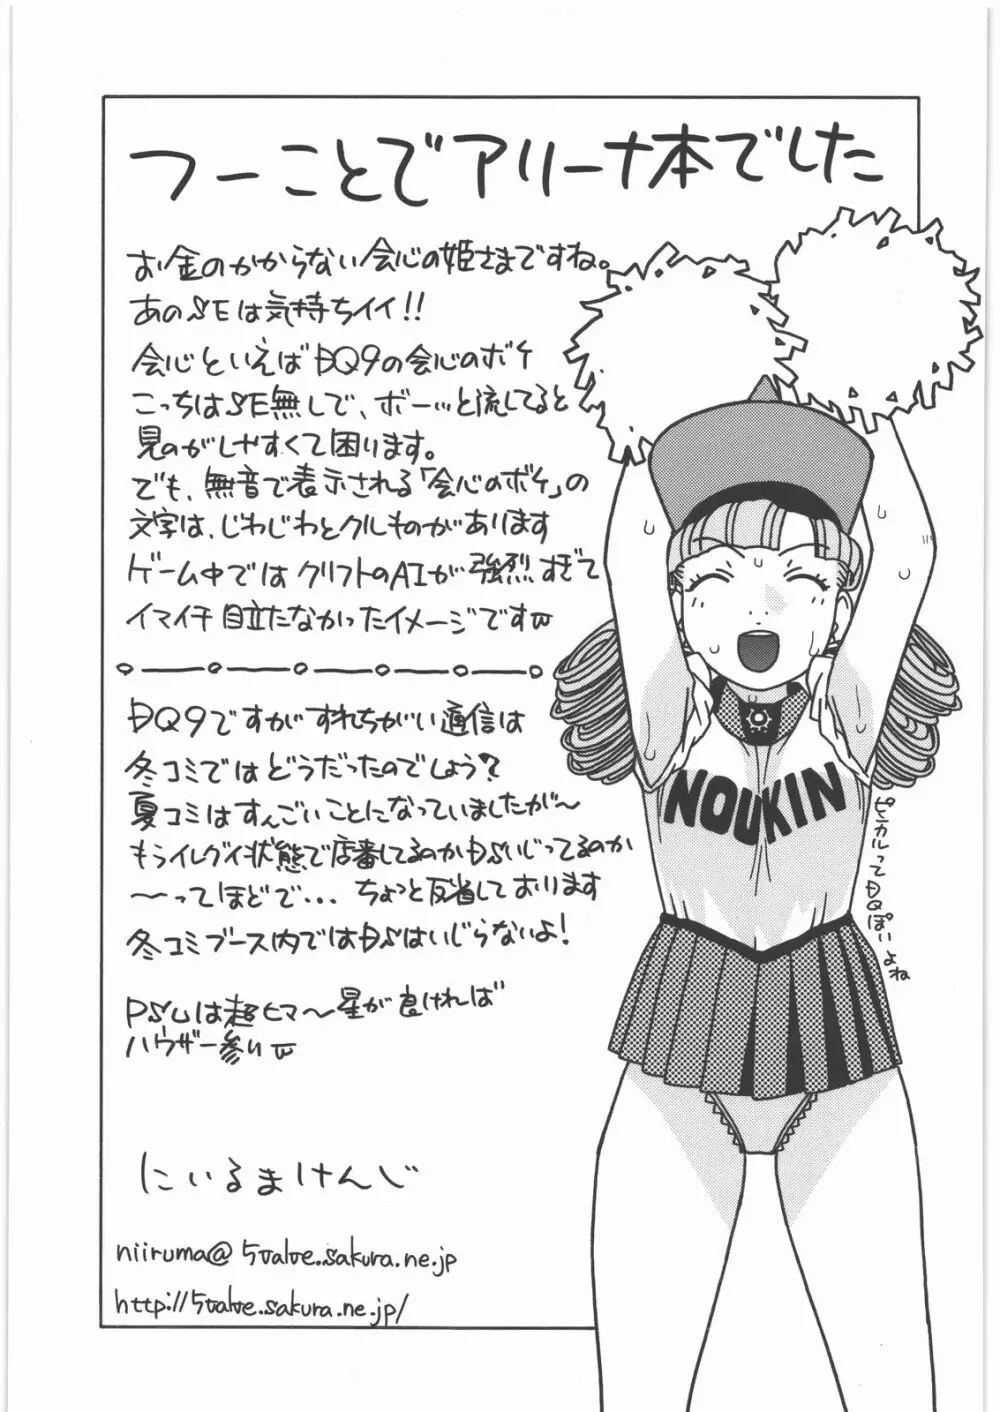 つーことでアリーナ本でした
お金のかからない会心の姫さまですね。
あのSEは気持ちイイ!!
会心といえばDQ9の会心のボケ
こっちはSE無しで、ボーッと流してると
見のがしやすくて困ります。
でも、無音で表示される「会心のボケ」の
文字は、じわじわとクルものがあります
ゲーム中ではクリフトのAIが強烈すぎて
イマイチ目立たなかったイメージですw
DQ9ですがすれちがい通信は
冬コミではどうだったのでしょう?
夏コミはすんごいことになっていましたが〜
もうイレグイ状態で店番してるのかDSいじってるのか
〜ってほどで... ちょっと反省しております
冬コミブース内ではDSはいじらないよ!
PSUは超ヒマ〜星が良ければ
ハウザー参りw
にいるまけんじ
niiruma@5valve.sakura.ne.jp
http://5valve.sakura.ne.jp/
NOUKIN
ピニカルってDQぽいよね